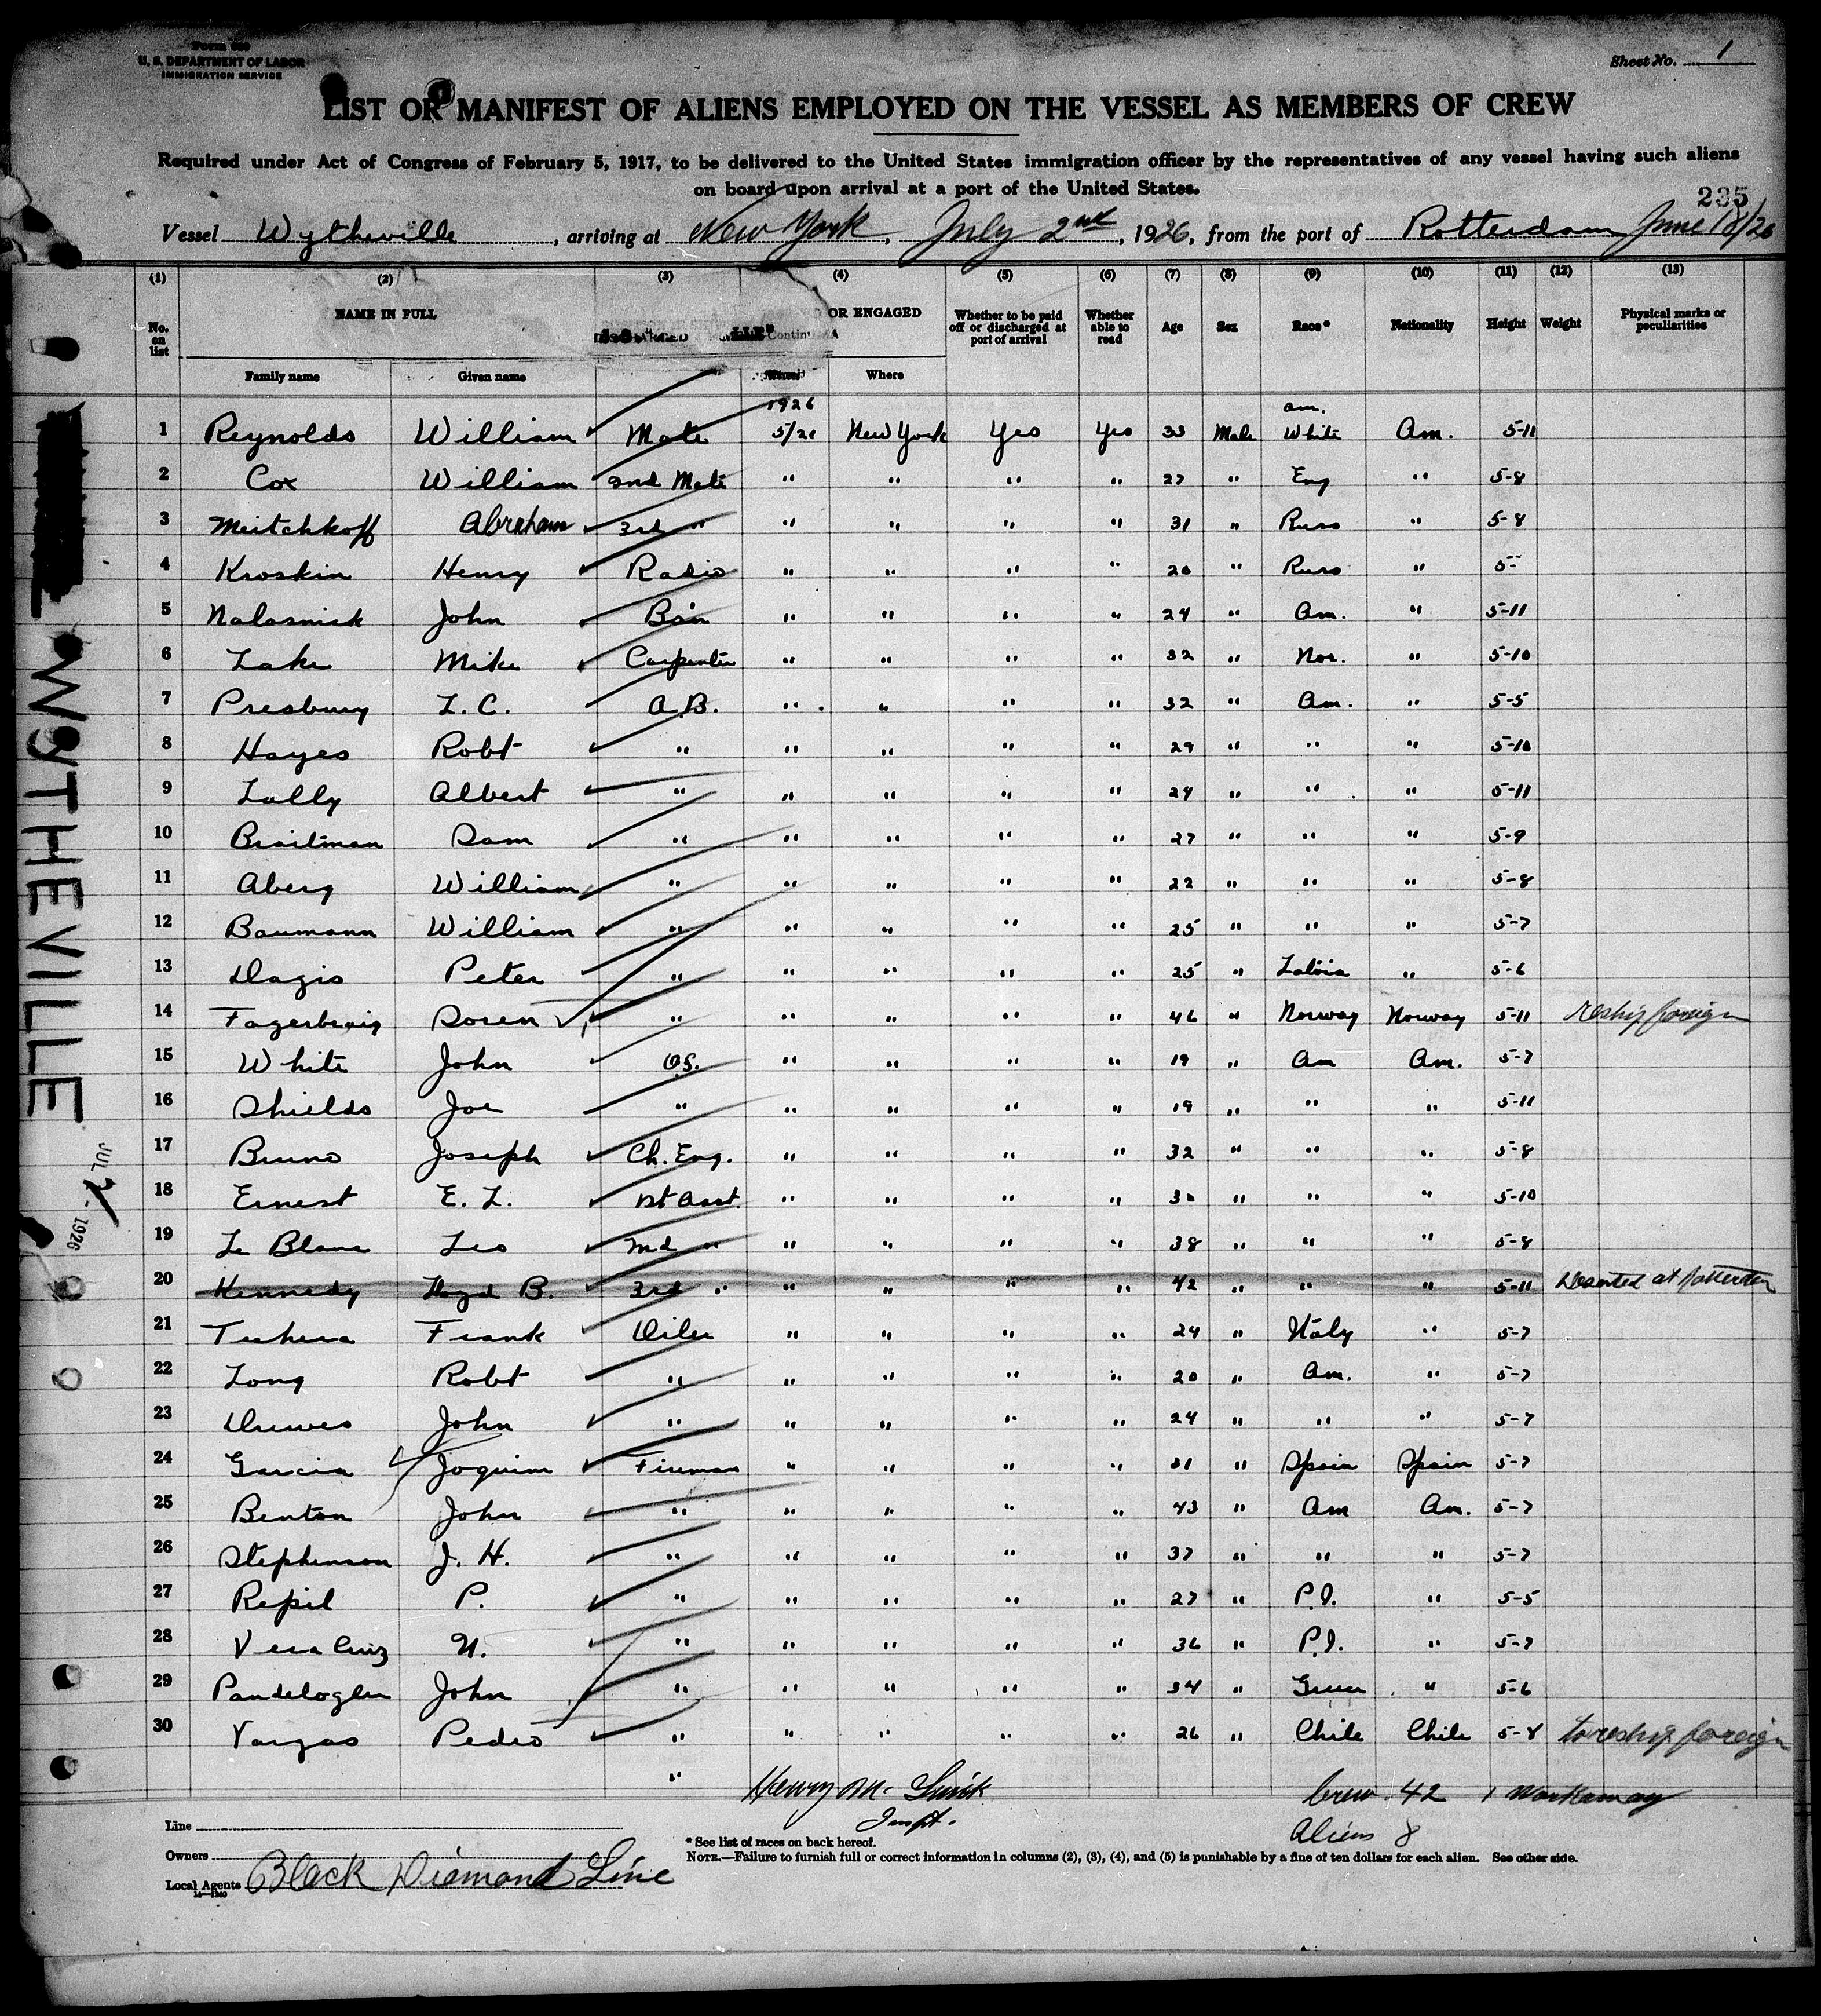 Form 680
U. S. DEPARTMENT OF LABOR
IMMIGRATION SERVICE
Sheet No. 1
LIST OR MANIFEST OF ALIENS EMPLOYED ON THE VESSEL AS MEMBERS OF CREW
Required under Act of Congress of February 5, 1917, to be delivered to the United States immigration officer by the representatives of any vessel having such aliens
on board upon arrival at a port of the United States.
235
Vessel Wytheville, arriving at New York, July 2nd, 1926, from the port of Rotterdam June 18/26
(1) (2) (3) (4) (5) (6) (7) (8) (9) (10) (11) (12) (13)
No. on list NAME IN FULL OR ENGAGED Whether to be paid off or discharged at port of arrival Whether able to read Age Sex Race* Nationality Height Weight Physical marks or peculiarities
Family name Given name Where
1926 am.
1 Reynolds William Mate 5/21 New York Yes Yes 33 Male White Am. 5-11
2 Cox William 2nd Mate " " " " 27 " Eng " 5-8
3 Meitchkoff Abraham 3rd " " " " " 31 " Russ " 5-8
4 Kroskin Henry Radio " " " " 20 " Russ " 5-
5 Nalasnick John Bo'n " " " " 24 " Am. " 5-11
6 Lake Mike Carpenter " " " " 32 " Nor. " 5-10
7 Presbury L. C. A.B. " " " " 32 " Am. " 5-5
8 Hayes Robt " " " " " 29 " " " 5-10
9 Lally Albert " " " " " 24 " " " 5-11
10 Braitman Sam " " " " " 27 " " " 5-9
11 Aberg William " " " " " 22 " " " 5-8
12 Baumann William " " " " " 25 " " " 5-7
13 Dagis Peter " " " " " 25 " Latvia " 5-6
14 Soren " " " " " 46 " Norway Norway 5-11 reship foreign
15 White John O.S. " " " " 19 " Am Am. 5-7
16 Shields Joe " " " " " 19 " " " 5-11
17 Bruno Joseph Ch. Eng. " " " " 32 " " " 5-8
18 Ernest E. L. 1st Asst. " " " " 30 " " " 5-10
19 Le Blanc Leo 2nd " " " " " 38 " " " 5-8
20 Kennedy Lloyd B. 3rd " " " " " 42 " " " 5-11 Deserted at Rotterdam
21 Frank Oiler " " " " 24 " Italy " 5-7
22 Long Robt " " " " " 20 " Am. " 5-7
23 Drewes John " " " " " 24 " " " 5-7
24 Garcia Joquim Fireman " " " " 31 " Spain Spain 5-7
25 Benton John " " " " " 43 " Am Am. 5-7
26 Stephenson J. H. " " " " " 37 " " " 5-7
27 Repil P. " " " " " 27 " P.I. " 5-5
28 Vera Cruz N. " " " " " 36 " P.I. " 5-7
29 Pandeloglu John " " " " " 34 " Greece " 5-6
30 Vargas Pedro " " " " " 26 " Chile Chile 5-8 to reship foreign
"
Henry M. Inspt.
Crew 42 1 Workaway
Aliens 8
Line
Owners
Local Agents Black Diamond Line
* See list of races on back hereof.
NOTE.—Failure to furnish full or correct information in columns (2), (3), (4), and (5) is punishable by a fine of ten dollars for each alien. See other side.
WYTHEVILLE
JUL 2 - 1926